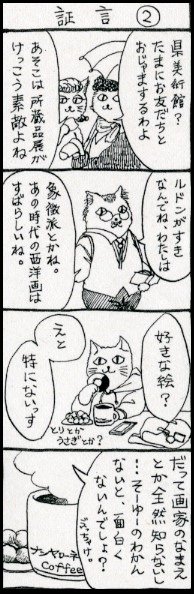 証言②
県美術館?
たまにお友だちと
おじゃまするわよ
あそこは所蔵品展が
けっこう素敵よね
ルドンがすき
なんでね、わたしは
象徴派とかね。
あの時代の西洋画は
すばらしいね。
好きな絵?
えと
特にないっす
とりとか
うさぎとか?
だって画家のなまえ
とか全然知らないし
…そーゆーのわかん
ないと、面白く
ないんでしょ?
ぶっちゃけ。
Coffee